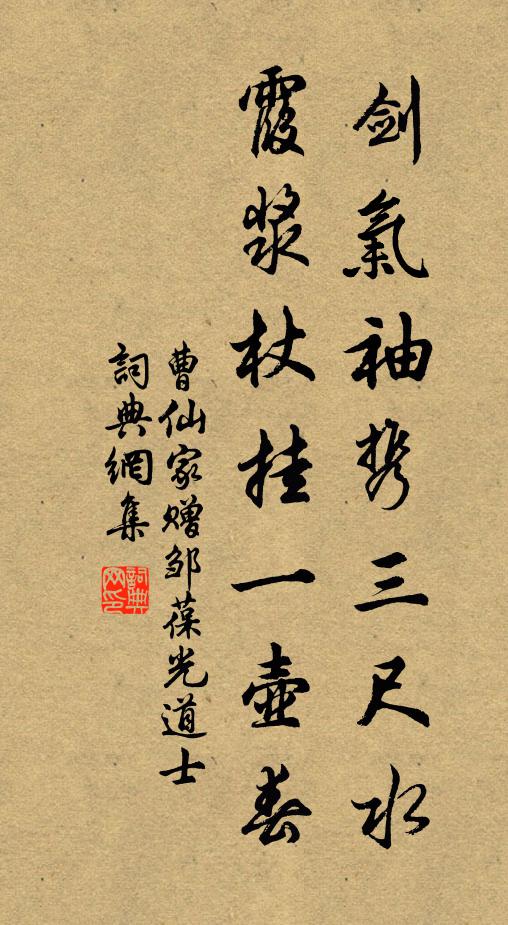 劍氣袖携三尺水
霞漿杖挂一壺春
曹仙家贈邹葆光道士
詞典網集
詞典
网印